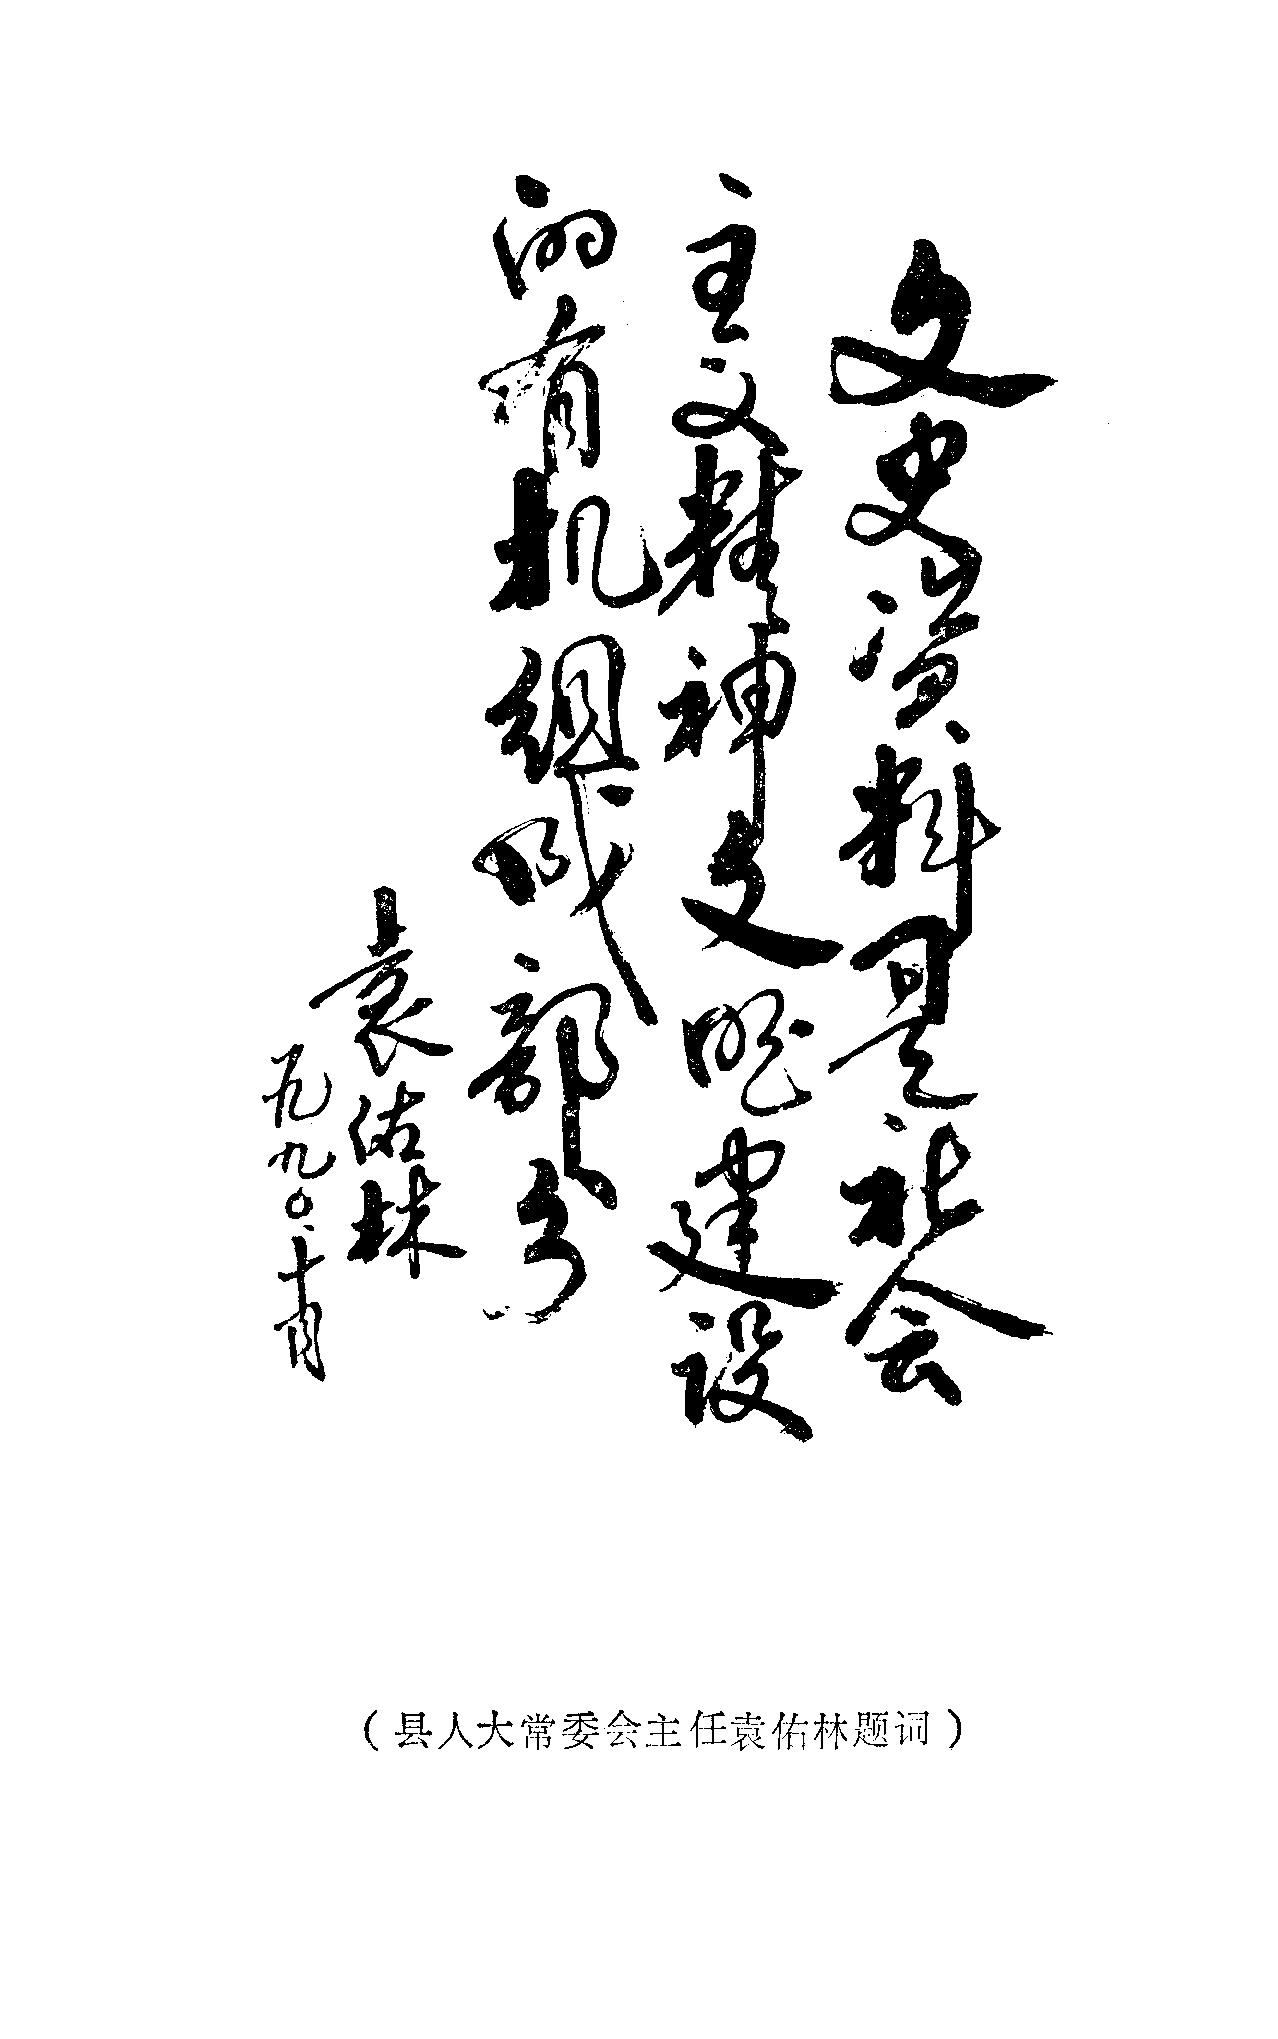 文史资料是社会
主义精神文明建设
的有机组成部分
袁佑林
一九九〇、十月
（县人大常委会主任袁佑林题词）